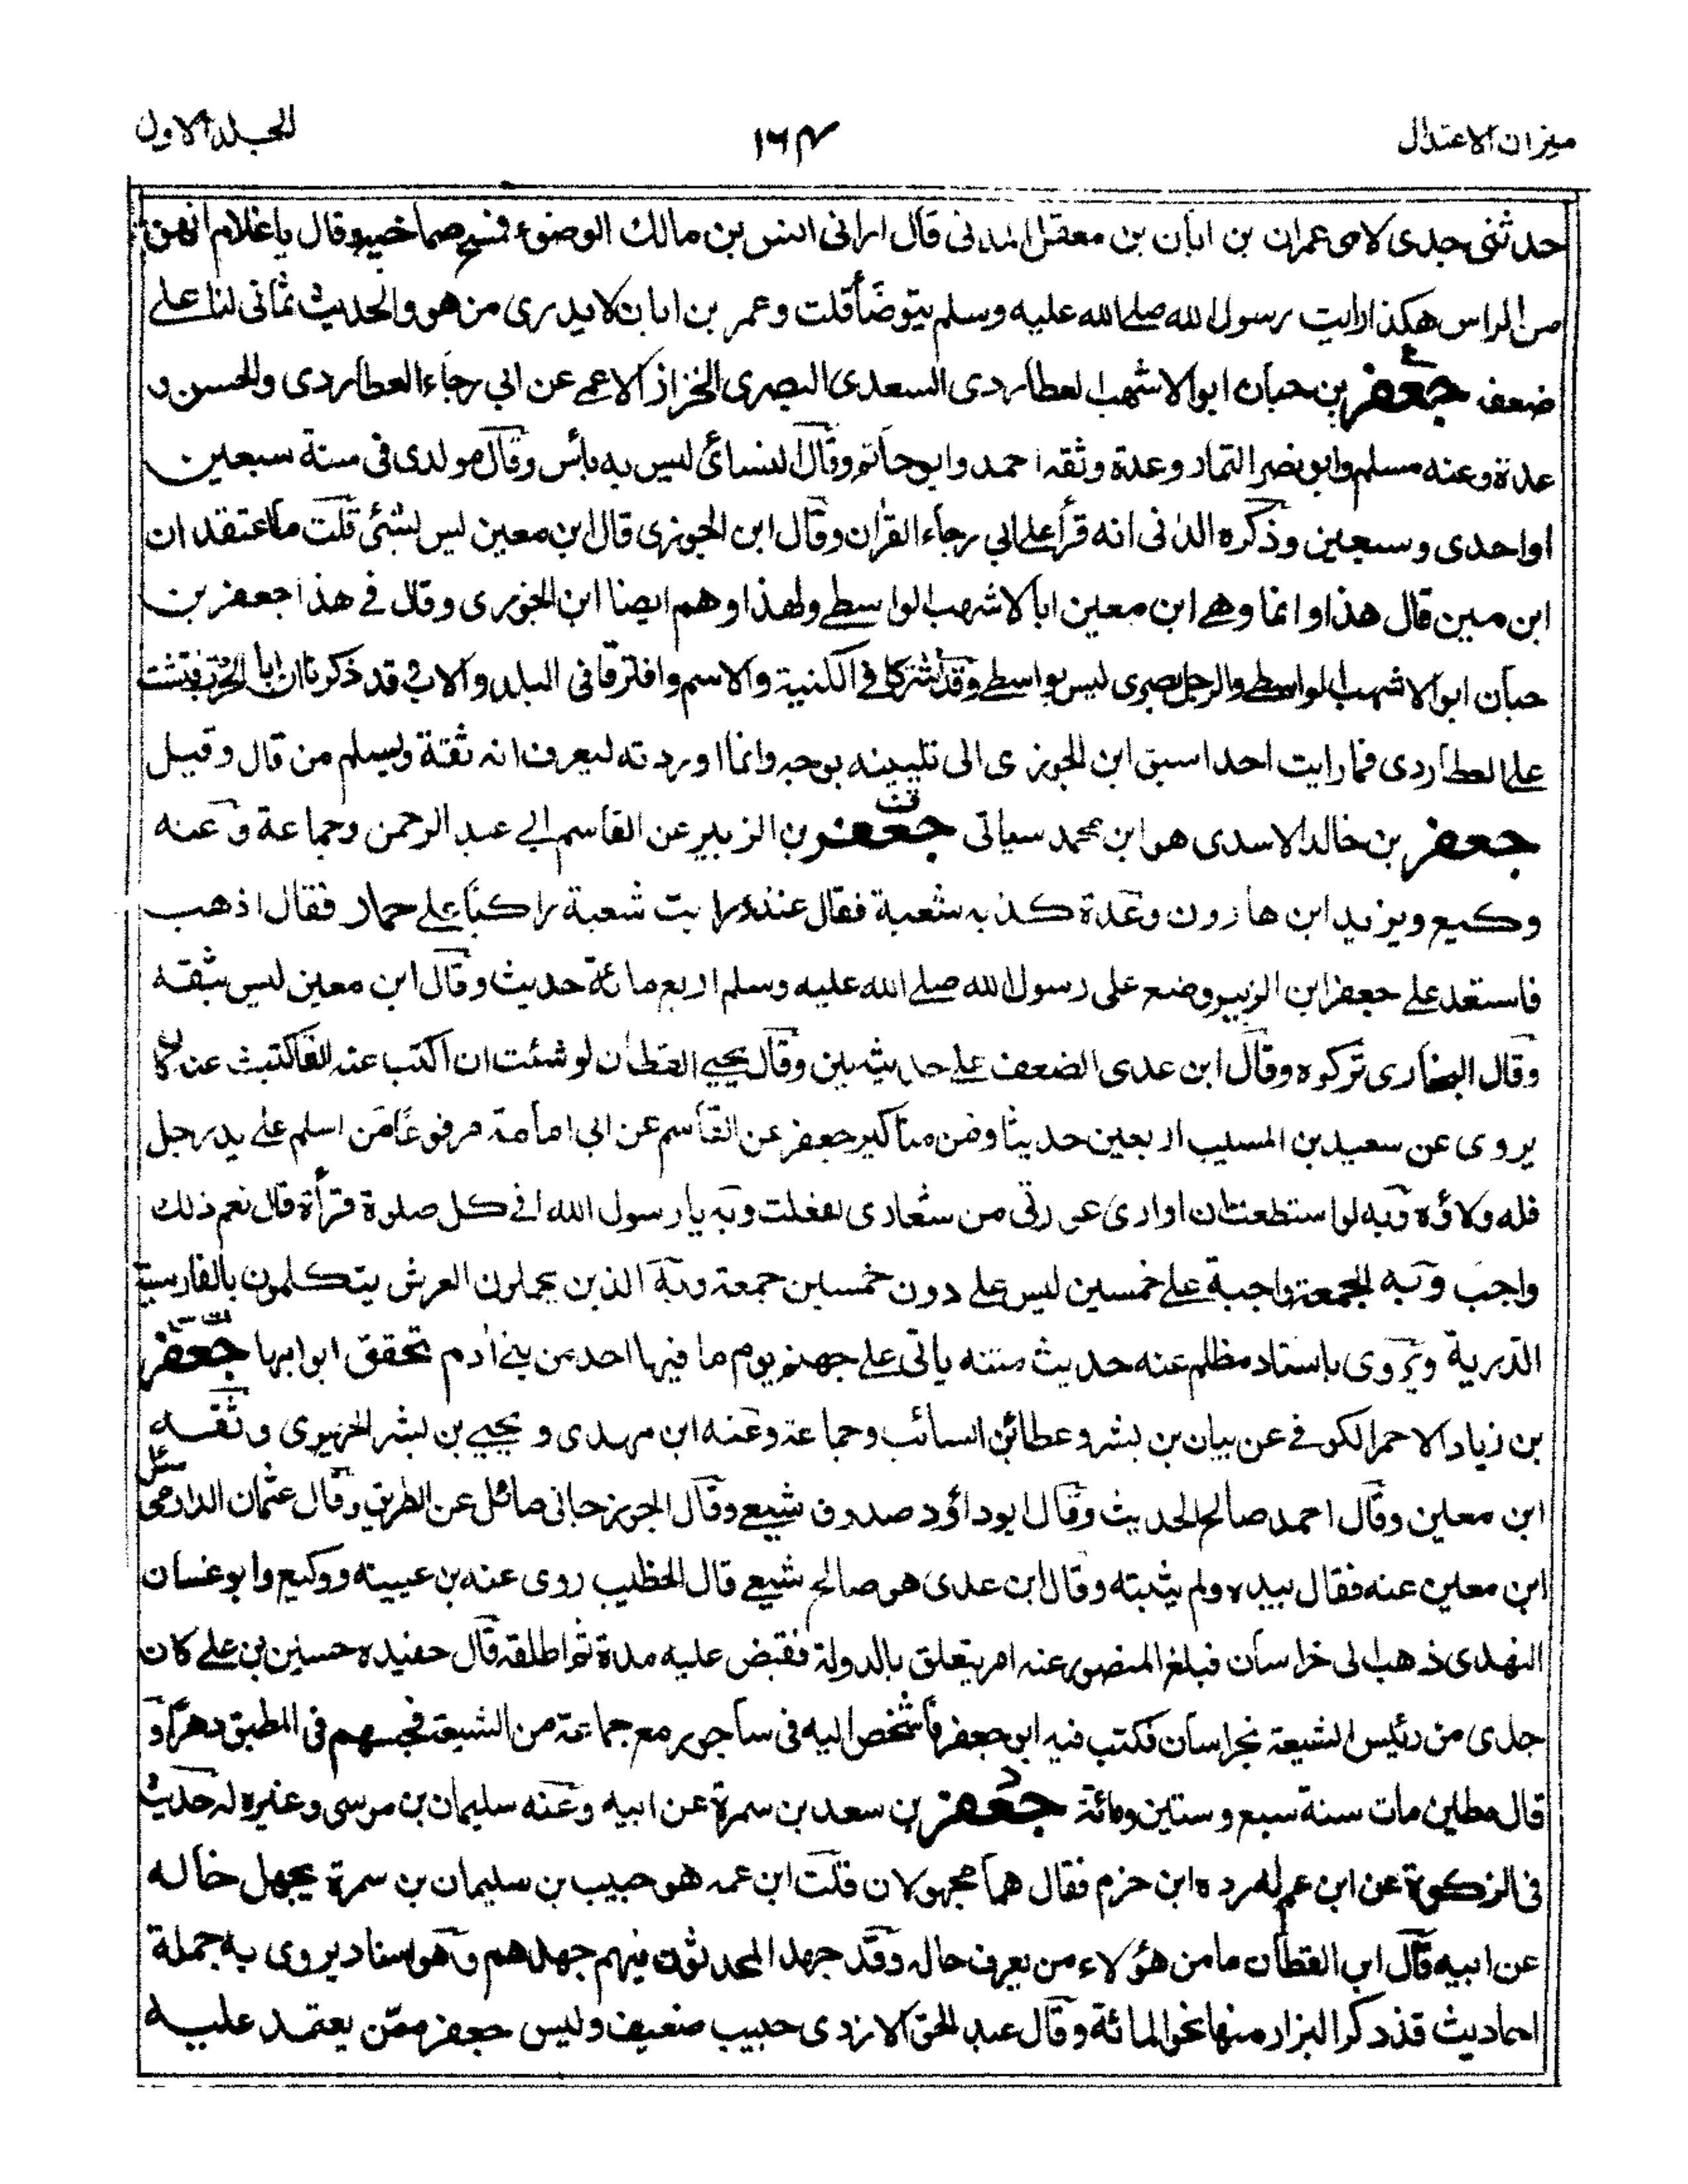 ميزان الاعتدال
١٦٤
المجلد الاول
حدثنى جدى لامى عمران بن ابان بن معقل المدنى قال ارانى انس بن مالك الوضوء فمسح صماخيه وقال يا غلام انهن
من الراس هكذا رايت رسول الله صلى الله عليه وسلم يتوضأ قلت وعمر بن ابان لا يدرى من هو والحديث ثمانى لنا على
ضعف جعفر بن حبان ابو الاشهب العطاردى السعدى البصرى الخزاز الاعمى عن ابي رجاء العطاردى والحسن و
عدة وعنه مسلم وابو نصر التمار وعدة وثقه احمد وابو حاتم وقال النسائى ليس به بأس وقال مولدى فى سنة سبعين
او احدى وسبعين وذكره الدانى انه قرأ على ابي رجاء القرآن وقال ابن الجوزى قال ابن معين ليس بشئى قلت ما اعتقد ان
ابن معين قال هذا وانما وهى ابن معين ابا الاشهب الواسطى ولهذا وهم ايضا ابن الجوزى وقال فى هذا جعفر بن
حبان ابو الاشهب الواسطى والرجل بصرى ليس بواسطى وقد اشتركا فى الكنية والاسم وافترقا فى البلد والاب قد ذكرنا ان ابا الحرث فتشت
على العطاردى فما رايت احدا سبق ابن الجوزى الى تليينه بوجه وانما اوردته ليعرف انه ثقة ويسلم من قال وقيل
جعفر بن خالد الاسدى هو ابن محمد سياتى جعفر بن الزبير عن القاسم ابي عبد الرحمن وجماعة وعنه
وكيع ويزيد ابن هارون وعدة كذبه شعبة فقال عنه رايت شعبة راكبا على حمار فقال اذهب
فاستعد على جعفر ابن الزبير وضع على رسول الله صلى الله عليه وسلم اربع مائة حديث وقال ابن معين ليس بثقه
وقال البخارى تركوه وقال ابن عدى الضعف على حديثه بين وقال يحيى القطان لو شئت ان اكتب عنه الفا لكتبت عنه كان
يروى عن سعيد بن المسيب اربعين حديثا ومن مناكير جعفر عن القاسم عن ابى امامة مرفوعا من اسلم على يد رجل
فله ولاؤه وبه لو استطعت ان اوارى عورتى من شعارى لفعلت وبه يا رسول الله افى كل صلوة قرأة قال نعم ذلك
واجب وبه الجمعة واجبة على خمسين ليس على دون خمسين جمعة وبه الذين يحملون العرش يتكلمون بالفارسية
الدرية ويروى باسناد مظلم عنه حديث متنه ياتى على جهنم يوم ما فيها احد من بنى ادم تخفق ابوابها جعفر
بن زياد الاحمر الكوفى عن بيان بن بشر وعطا بن السائب وجماعة وعنه ابن مهدى ويحيى بن بشر الحريرى وثقه
ابن معين وقال احمد صالح الحديث وقال ابو داؤد صدوق شيعى وقال الجوزجانى مائل عن الطريق وقال عثمان الدارمى سئل
ابن معين عنه فقال بيده ولم يثبته وقال ابن عدى هو صالح شيعى قال الخطيب روى عنه بن عيينه ووكيع وابو غسان
النهدى ذهب الى خراسان فبلغ المنصور عنه امر يتعلق بالدولة فقبض عليه مدة ثم اطلقه قال حفيده حسين بن على كان
جدى من رئيس الشيعة بخراسان فكتب فيه ابو جعفر فاشخص اليه فى ساجور مع جماعة من الشيعة فحبسهم فى المطبق دهرا و
قال مطين مات سنة سبع وستين ومائة جعفر بن سعد بن سمرة عن ابيه وعنه سليمان بن موسى وغيره له حديث
فى الزكوة عن ابن عم له رده ابن حزم فقال هما مجهولان قلت ابن عمه هو حبيب بن سليمان بن سمرة يجهل حاله
عن ابيه قال ابن القطان ما من هؤلاء من يعرف حاله وقد جهد المحدثون فيهم جهدهم وهو اسناد يروى به جملة
احاديث قد ذكر البزار منها نحو المائة وقال عبد الحق الازدى حبيب ضعيف وليس جعفر ممن يعتمد عليه